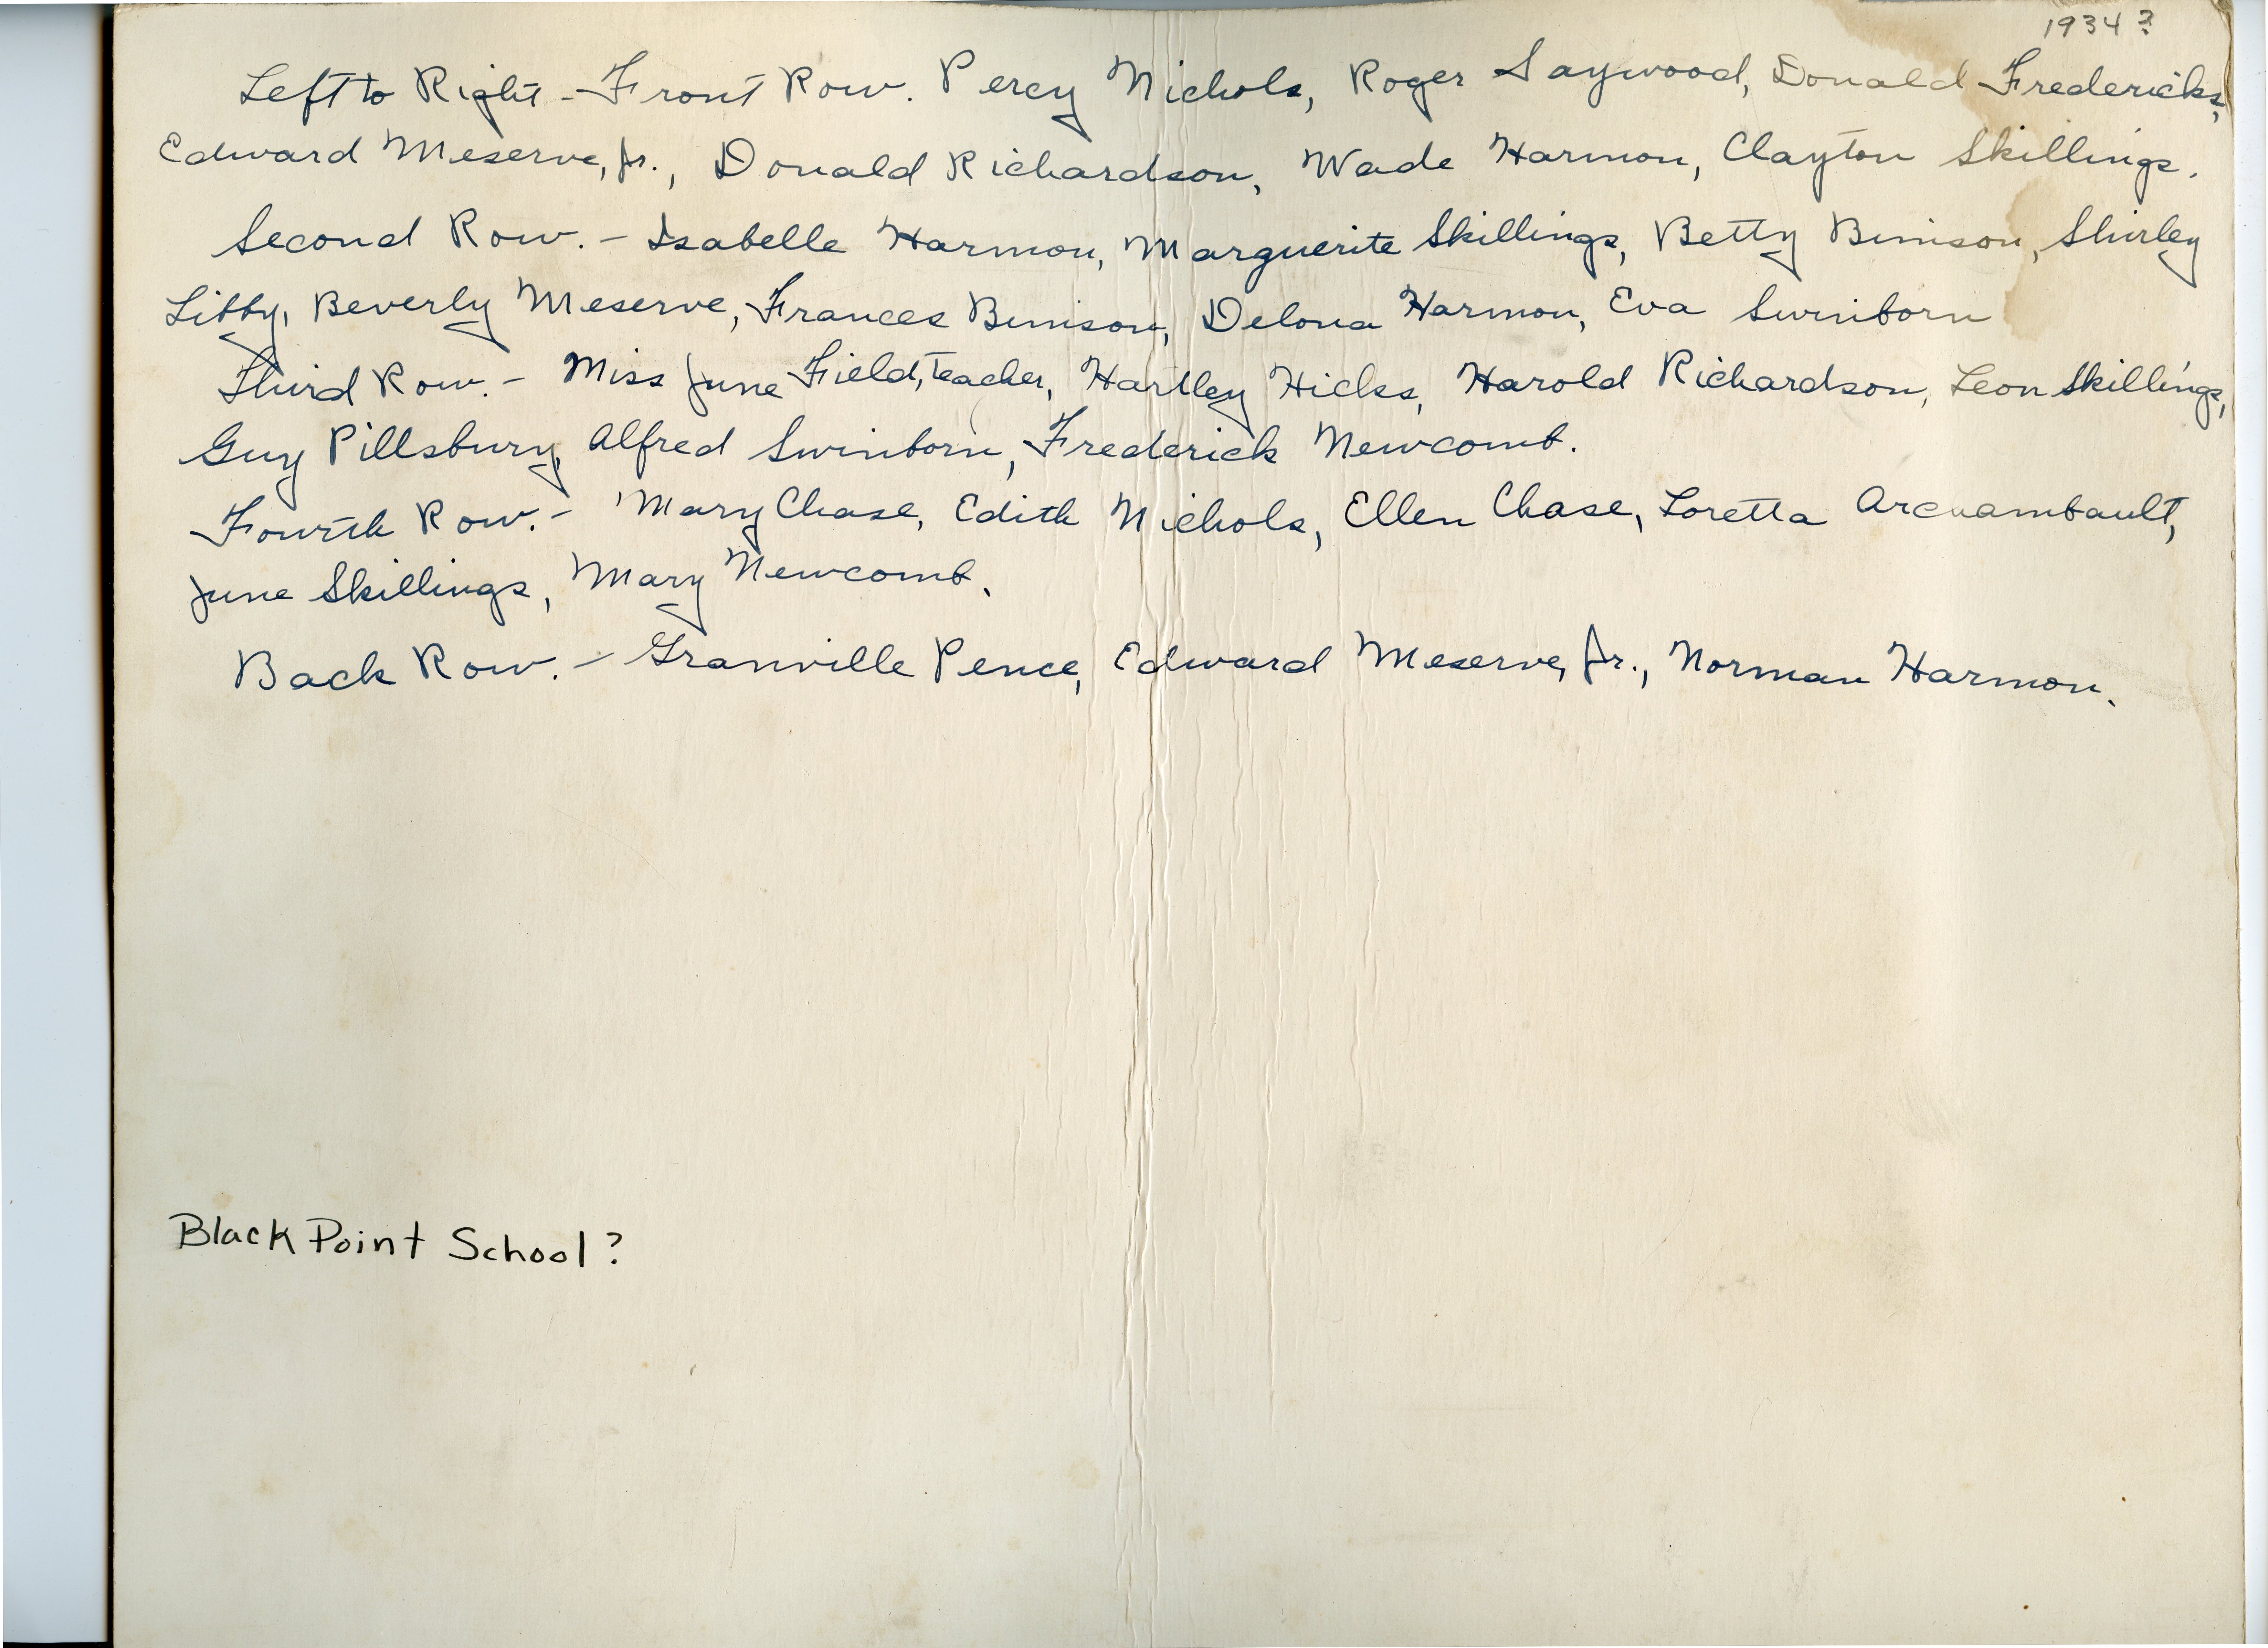 1934?
Left to Right - Front Row. Percy Nichols, Roger Saywood, Donald Fredericks,
Edward Meserve, Jr., Donald Richardson, Wade Harmon, Clayton Skillings.
Second Row. - Isabelle Harmon, Marguerite Skillings, Betty Bunison, Shirley
Libby, Beverly Meserve, Frances Bunison, Delona Harmon, Eva Swinborn
Third Row. - Miss June Field, teacher, Hartley Hicks, Harold Richardson, Leon Skillings,
Guy Pillsbury, Alfred Swinborn, Frederick Newcomb.
Fourth Row. - Mary Chase, Edith Nichols, Ellen Chase, Loretta Archambault,
June Skillings, Mary Newcomb.
Back Row. - Granville Pence, Edward Meserve, Jr., Norman Harmon.
Black Point School?